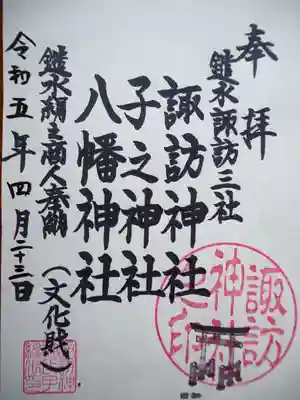 奉拝
鑓水諏訪三社
諏訪神社
子之神社
八幡神社
鑓水絹之商人奉納（文化財）
令和五年四月二十三日
諏訪
神社
之印